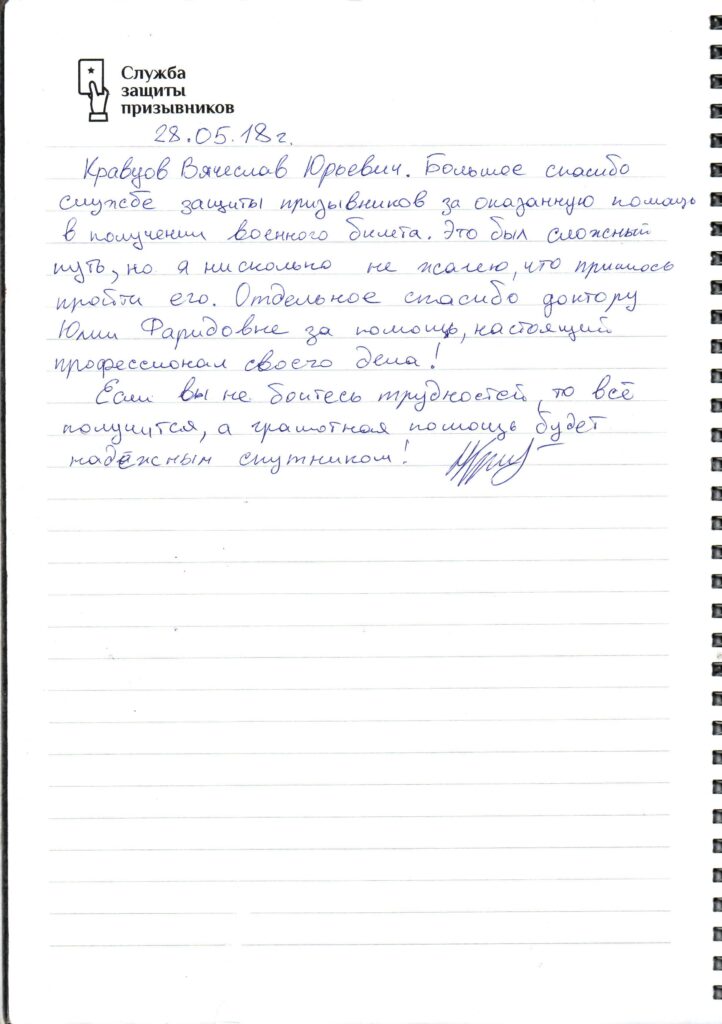 Служба
защиты
призывников
28.05.18г.
Кравцов Вячеслав Юрьевич. Большое спасибо
службе защиты призывников за оказанную помощь
в получении военного билета. Это был сложный
путь, но я нисколько не жалею, что пришлось
пройти его. Отдельное спасибо доктору
Юлии Фаридовне за помощь, настоящий
профессионал своего дела!
Если вы не боитесь трудностей, то всё
получится, а грамотная помощь будет
надёжным спутником!